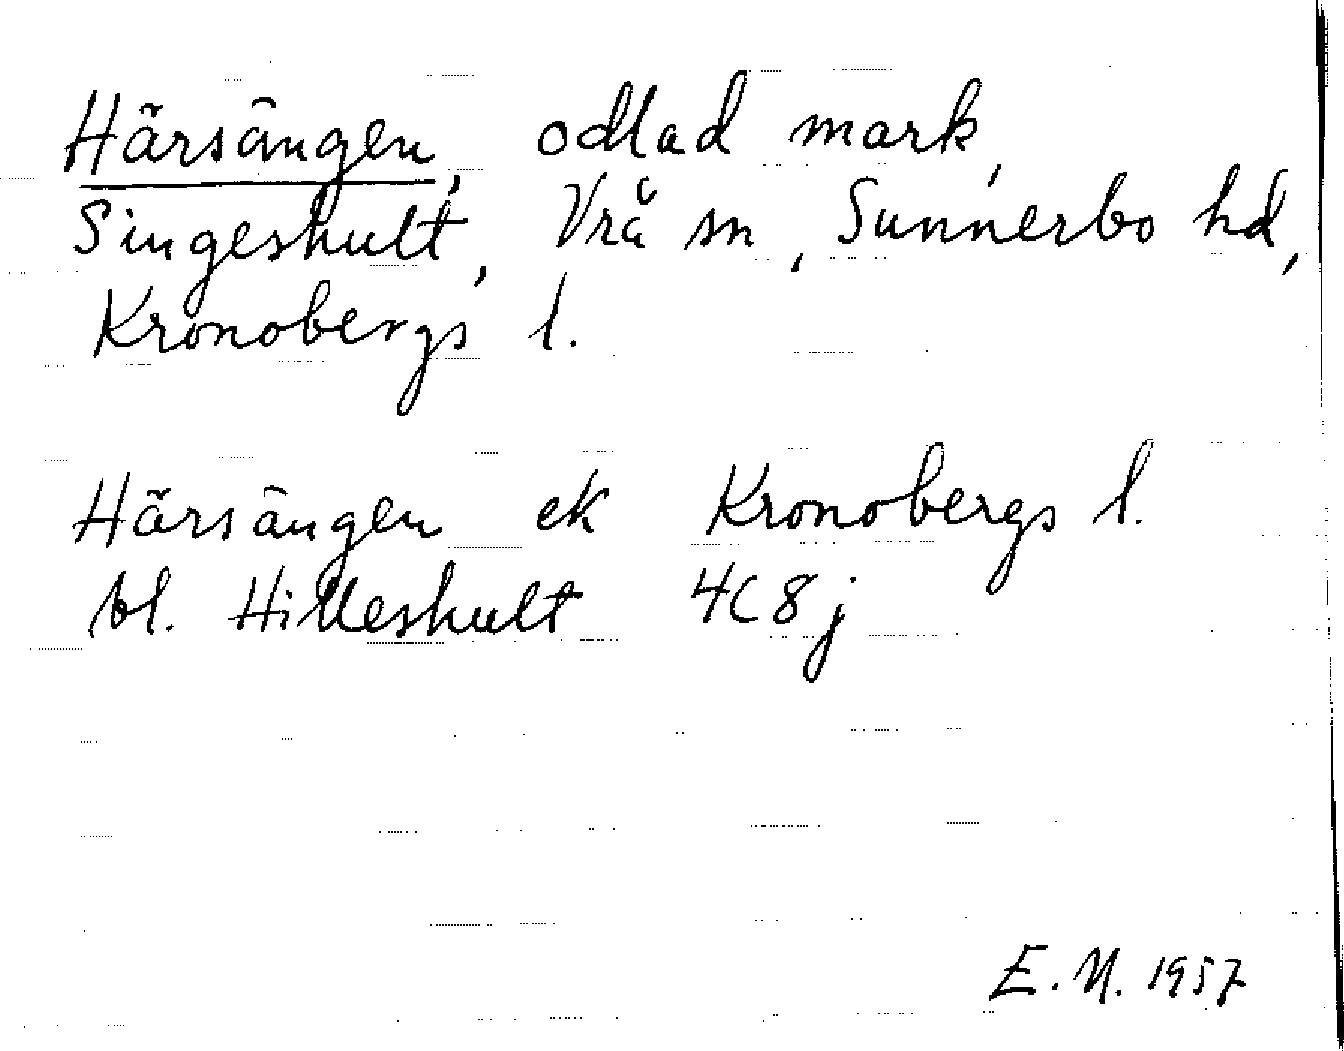 Härsängen, odlad mark,
Singeshult, Vrå sn, Sunnerbo hd,
Kronobergs l.
Härsängen ek Kronobergs l.
bl. Hilleshult 4C8j
E.N. 1957